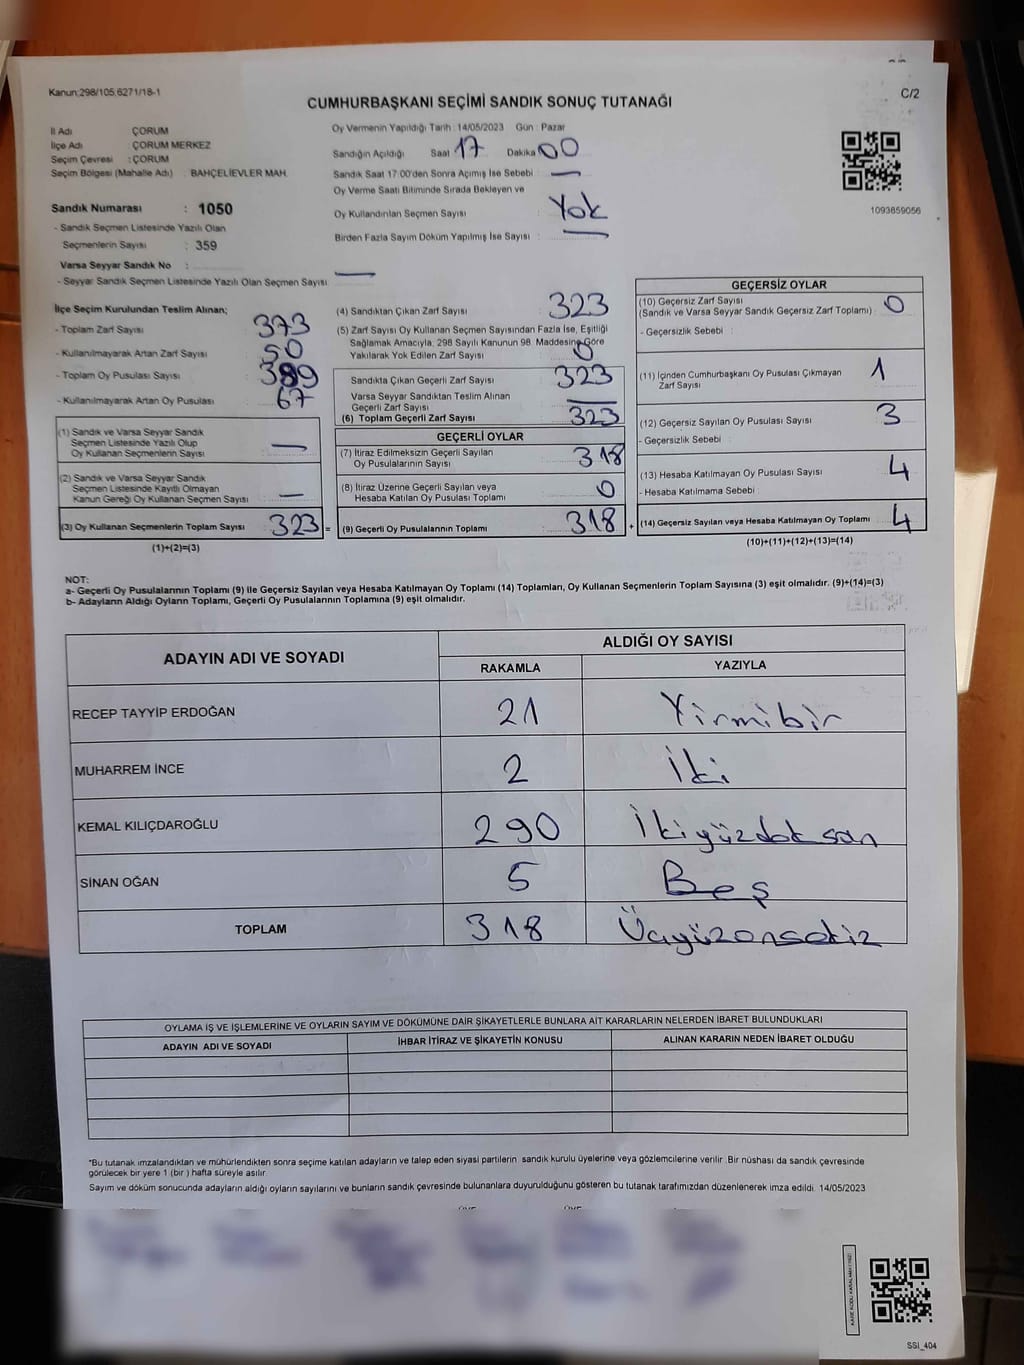 Kanun:298/105;6271/18-1
C/2
CUMHURBAŞKANI SEÇİMİ SANDIK SONUÇ TUTANAĞI
İl Adı ÇORUM
İlçe Adı ÇORUM MERKEZ
Seçim Çevresi : ÇORUM
Seçim Bölgesi (Mahalle Adı) : BAHÇELİEVLER MAH.
Sandık Numarası : 1050
- Sandık Seçmen Listesinde Yazılı Olan
Seçmenlerin Sayısı : 359
Varsa Seyyar Sandık No :
- Seyyar Sandık Seçmen Listesinde Yazılı Olan Seçmen Sayısı : —
Oy Vermenin Yapıldığı Tarih : 14/05/2023 Gün : Pazar
Sandığın Açıldığı Saat 17 Dakika 00
Sandık Saat 17:00'den Sonra Açılmış İse Sebebi : —
Oy Verme Saati Bitiminde Sırada Bekleyen ve
Oy Kullandırılan Seçmen Sayısı : Yok
Birden Fazla Sayım Döküm Yapılmış İse Sayısı : —
1093859056
İlçe Seçim Kurulundan Teslim Alınan;
- Toplam Zarf Sayısı : 373
- Kullanılmayarak Artan Zarf Sayısı : 50
- Toplam Oy Pusulası Sayısı : 389
- Kullanılmayarak Artan Oy Pusulası : 67
(1) Sandık ve Varsa Seyyar Sandık
Seçmen Listesinde Yazılı Olup
Oy Kullanan Seçmenlerin Sayısı : —
(2) Sandık ve Varsa Seyyar Sandık
Seçmen Listesinde Kayıtlı Olmayan
Kanun Gereği Oy Kullanan Seçmen Sayısı : —
(3) Oy Kullanan Seçmenlerin Toplam Sayısı : 323 =
(1)+(2)=(3)
(4) Sandıktan Çıkan Zarf Sayısı : 323
(5) Zarf Sayısı Oy Kullanan Seçmen Sayısından Fazla İse, Eşitliği
Sağlamak Amacıyla, 298 Sayılı Kanunun 98. Maddesine Göre
Yakılarak Yok Edilen Zarf Sayısı : 0
Sandıkta Çıkan Geçerli Zarf Sayısı : 323
Varsa Seyyar Sandıktan Teslim Alınan
Geçerli Zarf Sayısı : —
(6) Toplam Geçerli Zarf Sayısı : 323
GEÇERLİ OYLAR
(7) İtiraz Edilmeksizin Geçerli Sayılan
Oy Pusulalarının Sayısı : 318
(8) İtiraz Üzerine Geçerli Sayılan veya
Hesaba Katılan Oy Pusulası Toplamı : 0
(9) Geçerli Oy Pusulalarının Toplamı : 318 +
GEÇERSİZ OYLAR
(10) Geçersiz Zarf Sayısı
(Sandık ve Varsa Seyyar Sandık Geçersiz Zarf Toplamı) : 0
- Geçersizlik Sebebi :
(11) İçinden Cumhurbaşkanı Oy Pusulası Çıkmayan
Zarf Sayısı : 1
(12) Geçersiz Sayılan Oy Pusulası Sayısı : 3
- Geçersizlik Sebebi :
(13) Hesaba Katılmayan Oy Pusulası Sayısı : 4
- Hesaba Katılmama Sebebi :
(14) Geçersiz Sayılan veya Hesaba Katılmayan Oy Toplamı : 4
(10)+(11)+(12)+(13)=(14)
NOT:
a- Geçerli Oy Pusulalarının Toplamı (9) ile Geçersiz Sayılan veya Hesaba Katılmayan Oy Toplamı (14) Toplamları, Oy Kullanan Seçmenlerin Toplam Sayısına (3) eşit olmalıdır. (9)+(14)=(3)
b- Adayların Aldığı Oyların Toplamı, Geçerli Oy Pusulalarının Toplamına (9) eşit olmalıdır.
ADAYIN ADI VE SOYADI
ALDIĞI OY SAYISI
RAKAMLA YAZIYLA
RECEP TAYYİP ERDOĞAN 21 Yirmibir
MUHARREM İNCE 2 İki
KEMAL KILIÇDAROĞLU 290 İkiyüzdoksan
SİNAN OĞAN 5 Beş
TOPLAM 318 Üçyüzonsekiz
OYLAMA İŞ VE İŞLEMLERİNE VE OYLARIN SAYIM VE DÖKÜMÜNE DAİR ŞİKAYETLERLE BUNLARA AİT KARARLARIN NELERDEN İBARET BULUNDUKLARI
ADAYIN ADI VE SOYADI İHBAR İTİRAZ VE ŞİKAYETİN KONUSU ALINAN KARARIN NEDEN İBARET OLDUĞU
*Bu tutanak imzalandıktan ve mühürlendikten sonra seçime katılan adayların ve talep eden siyasi partilerin sandık kurulu üyelerine veya gözlemcilerine verilir. Bir nüshası da sandık çevresinde
görülecek bir yere 1 (bir ) hafta süreyle asılır.
Sayım ve döküm sonucunda adayların aldığı oyların sayılarını ve bunların sandık çevresinde bulunanlara duyurulduğunu gösteren bu tutanak tarafımızdan düzenlenerek imza edildi. 14/05/2023
SSI_404